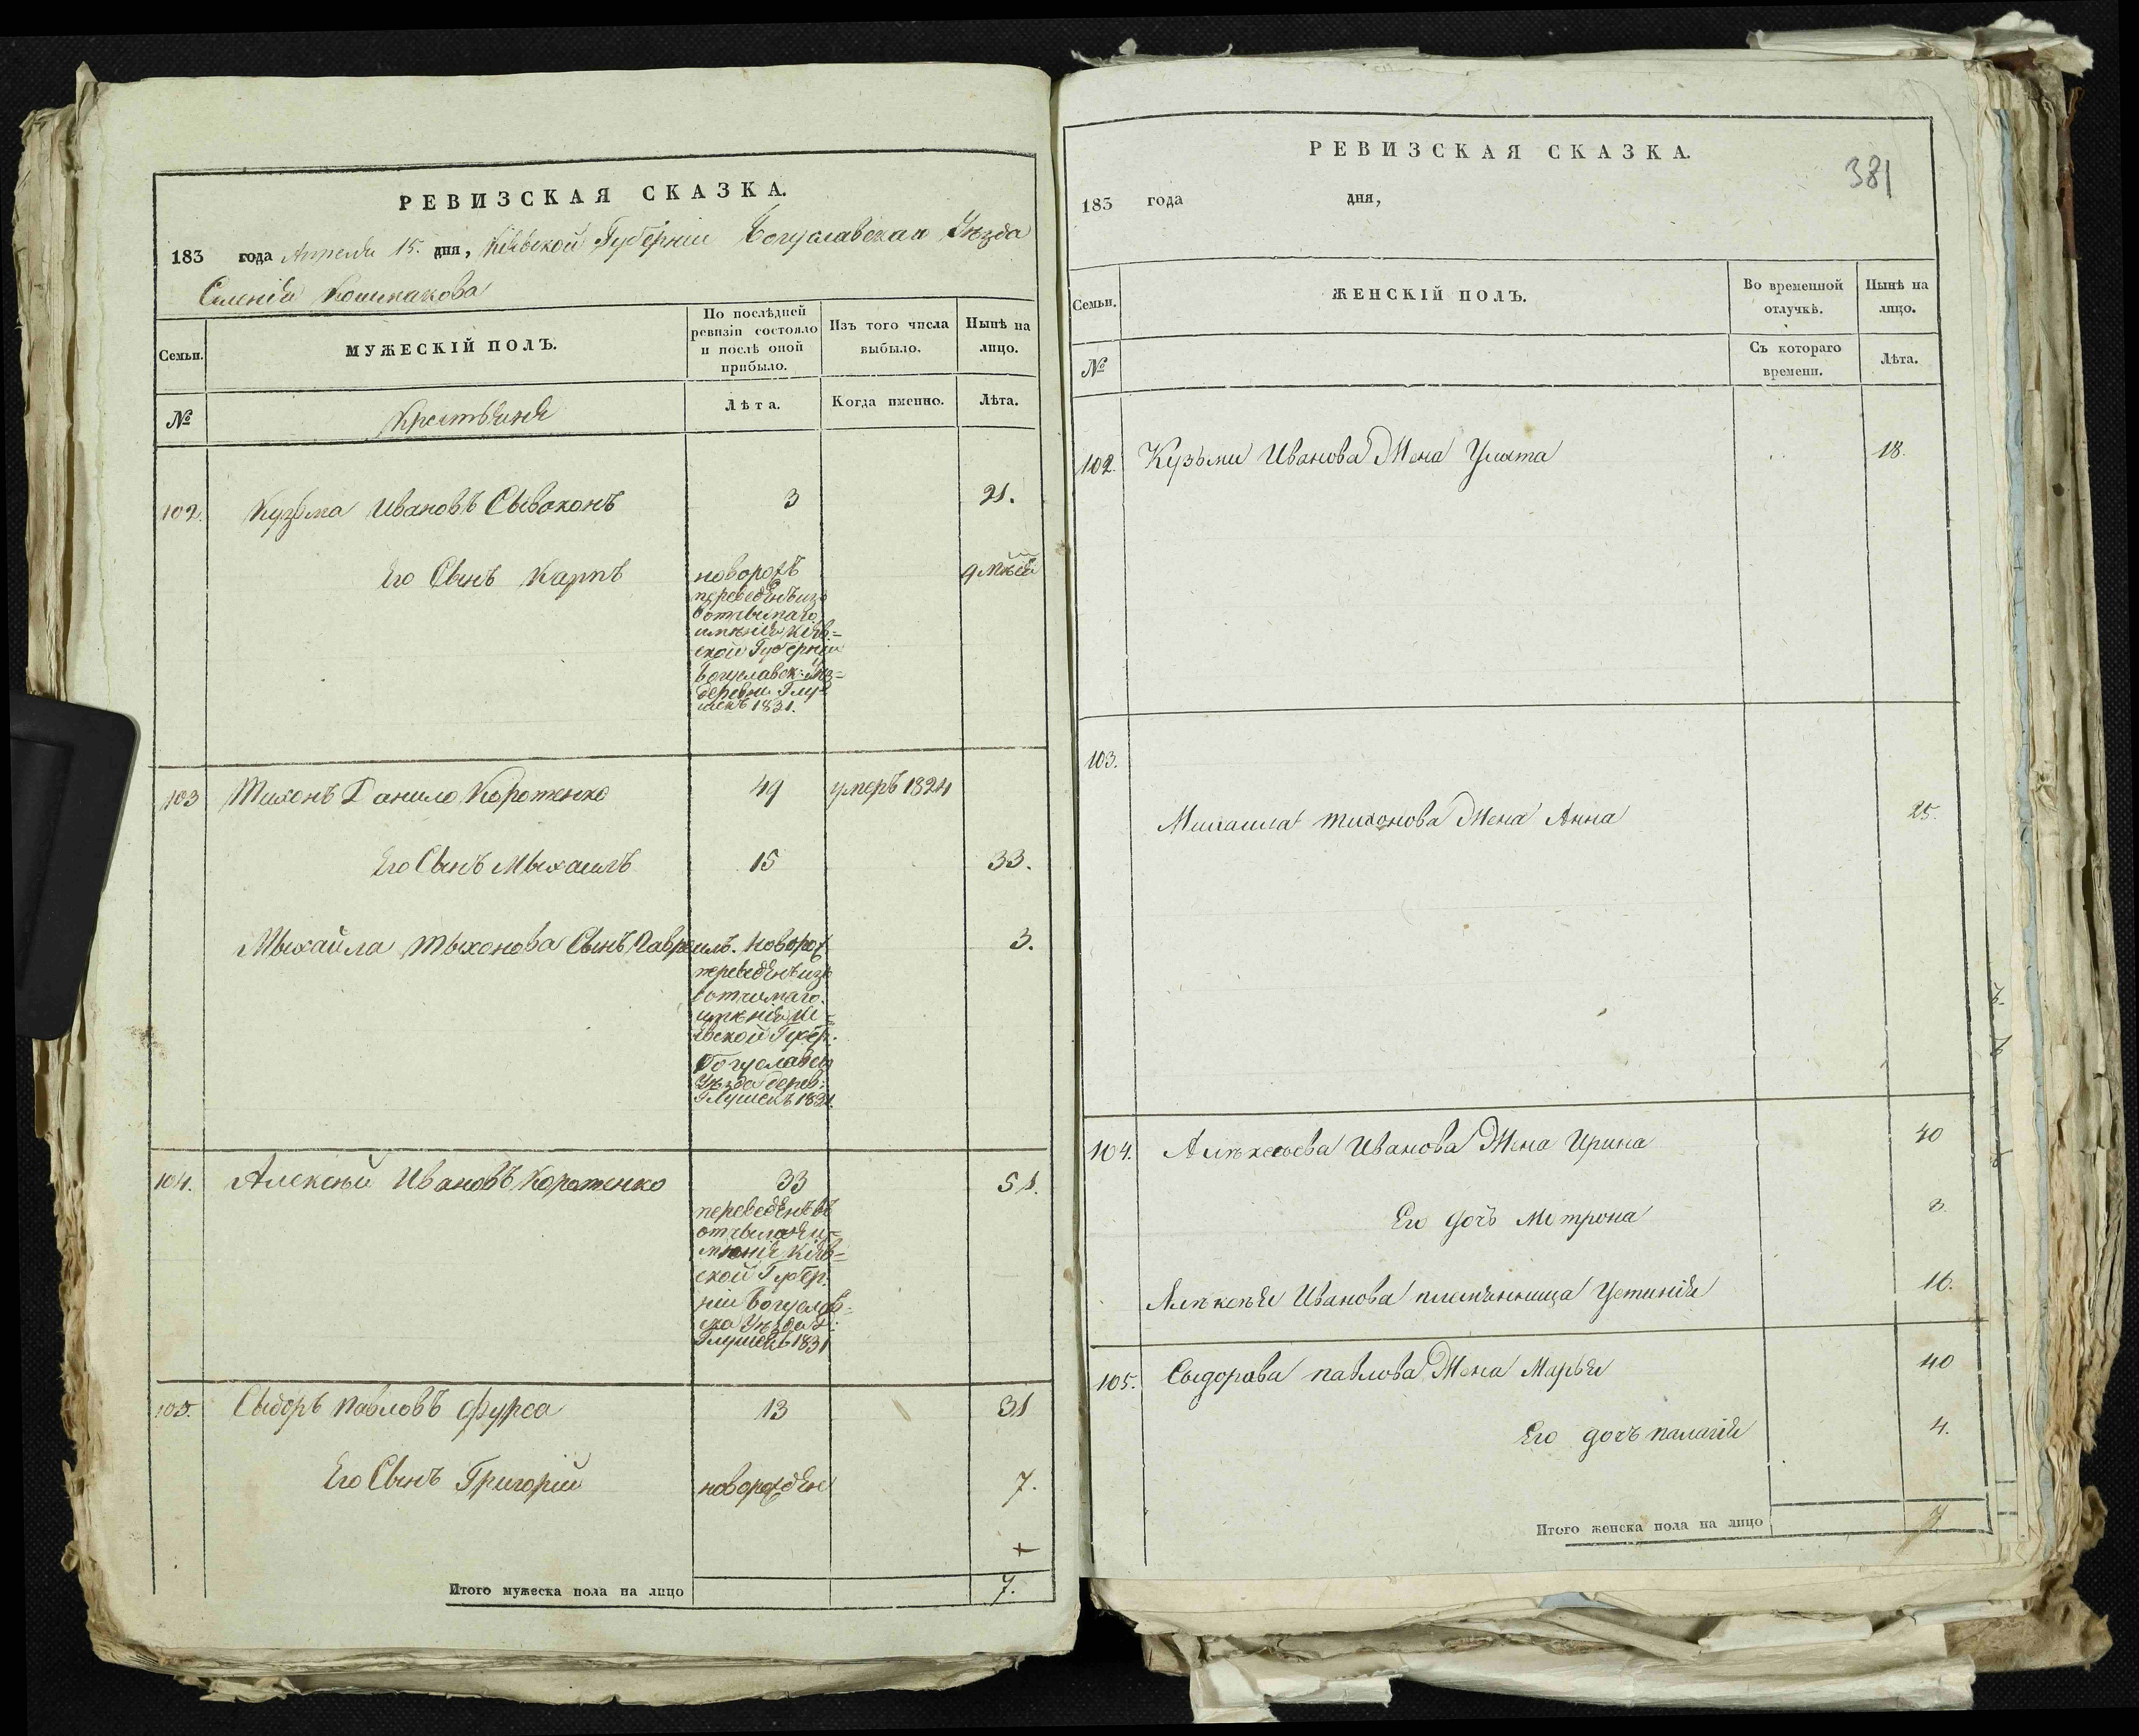 РЕВИЗСКАЯ СКАЗКА.
183 года Апреля 15. дня, Кіевской Губерніи Богуславскаго Уѣзда
Селенія Кошмакова
Семьи.
МУЖЕСКІЙ ПОЛЪ.
По послѣдней
ревизіи состояло
и послѣ оной
прибыло.
Изъ того числа
выбыло.
Нынѣ на
лицо.
№
Крестьяня
Лѣта.
Когда именно.
Лѣта.
102. Кузьма Ивановъ Сываконъ 3 21.
Его Сынъ Карпъ новорож
переведенъ изъ
вотчынаго
имѣнія Кіев=
ской Губерніи
Богуславск:
деревни Глу
шекъ 1831.
103 Тихонъ Данило Коротенко 49 умеръ 1824
Его Сынъ Мыхаилъ 15 33.
Мыхайла Тыхонова Сынъ Гавриилъ. новорож 3.
переведенъ изъ
вотчинаго
имѣнія Кі=
евской Губер:
Богуславск
Уѣзда дерев:
Глушекъ 1831.
104. Алексѣй Ивановъ Коротенко 33 51.
переведенъ въ
отчынаго и=
мѣнія Кіев=
ской Губер:
ніи Богуслав:
ска Уѣзда д:
Глушекъ 1831
105. Сыдоръ Павловъ Фурса 13 31
Его Сынъ Григорій новорожден 7.
+
Итого мужеска пола на лицо 7.
РЕВИЗСКАЯ СКАЗКА.
381
183 года дня,
Семьи.
ЖЕНСКІЙ ПОЛЪ.
Во временной
отлучкѣ.
Нынѣ на
лицо.
№
Съ котораго
времени.
Лѣта.
102. Кузьми Иванова Жена Улита 18.
103.
Михаила Тихонова Жена Анна 25.
104. Алѣксеева Иванова Жена Ирина 40
Его дочъ Мотрона 8.
Алѣксѣя Иванова племѣнница Устинія 16.
105. Сыдорова павлова Жена Марья 40
Его дочъ палагія 4.
Итого женска пола на лицо 7